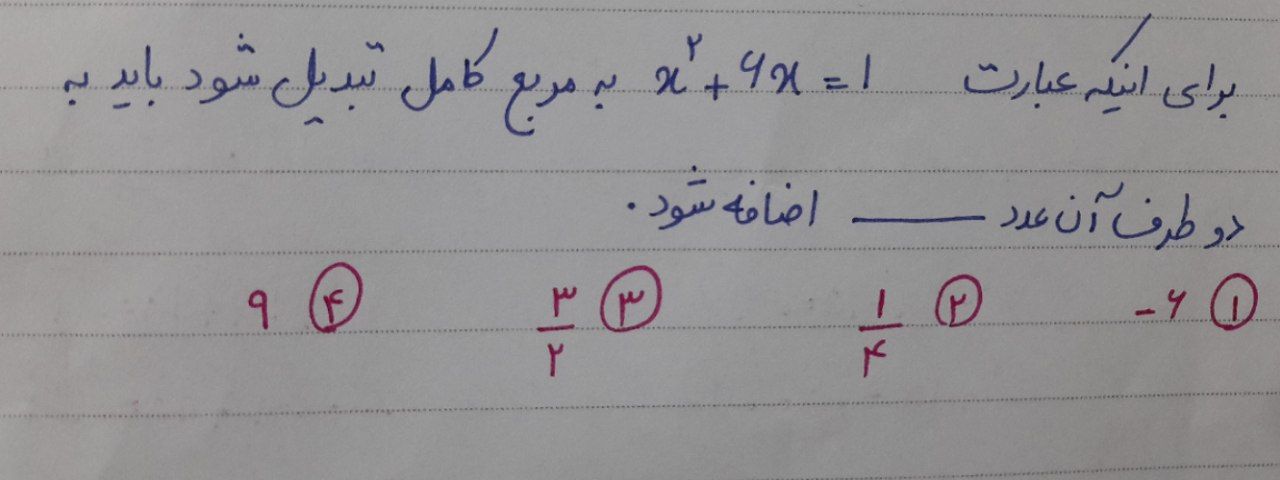 برای اینکه عبارت x² + ۶x = ۱ به مربع کامل تبدیل شود باید به
دو طرف آن عدد ــــــ اضافه شود.
۱ -۶ ۲ ۱/۴ ۳ ۳/۲ ۴ ۹